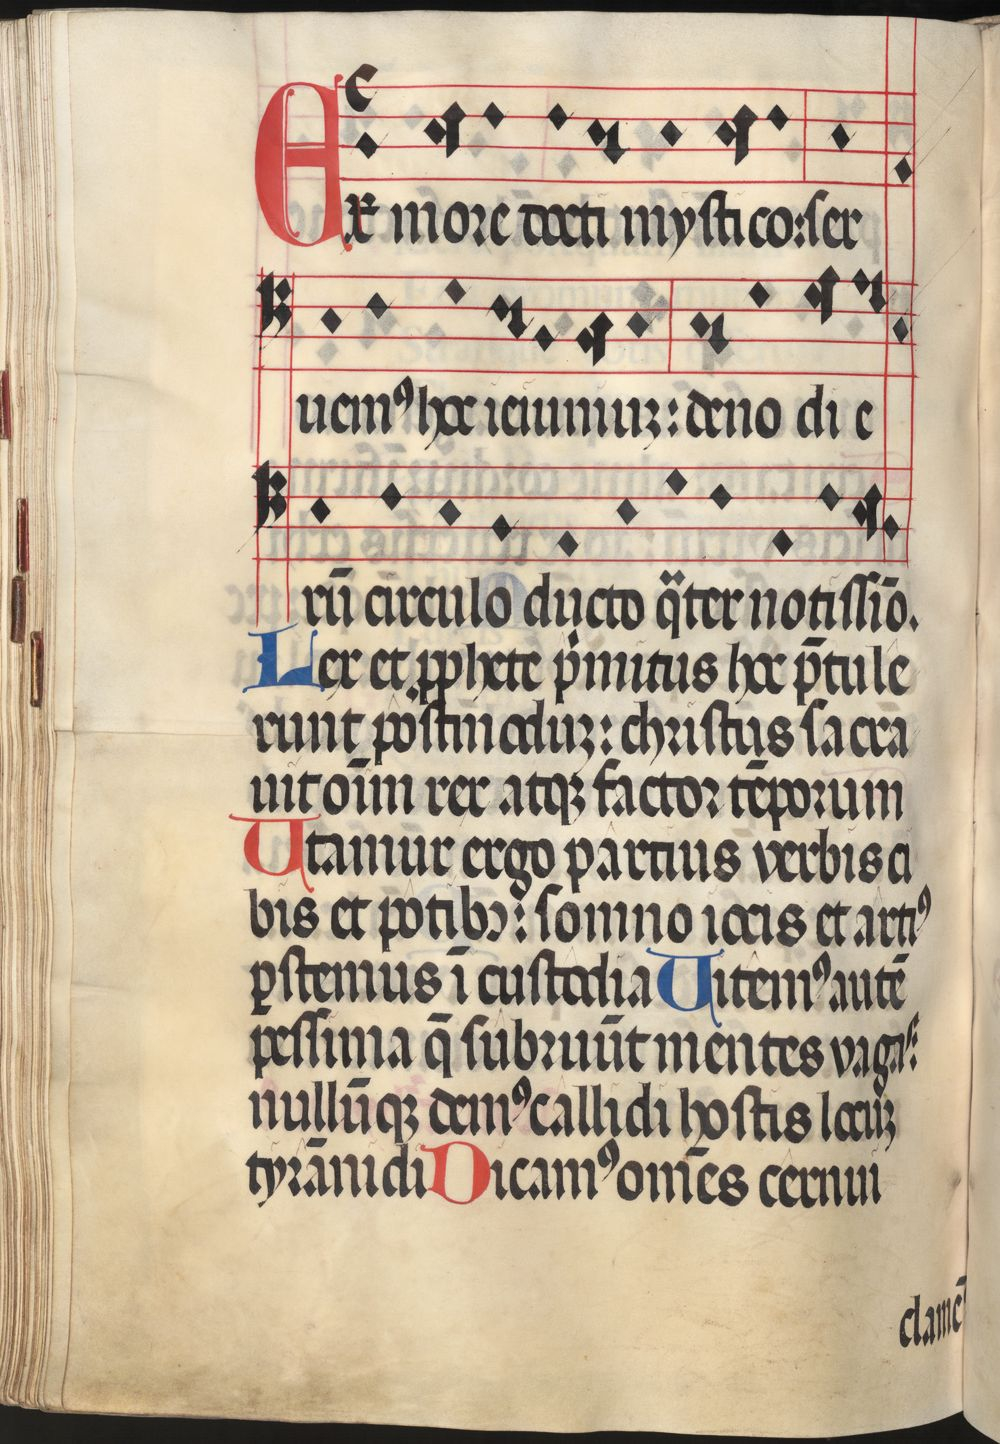 Ex more docti mystico: ser
uem⁹ hoc ieiuniuꝫ: deno di e
rū circulo ducto qͣter notissīo.
Lex et ꝓphete pͥmitus hoc p̄tule
runt postmoduꝫ: christus sacra
uit oīm rex atqꝫ factor tēporum
Utamur ergo partius verbis ci
bis et potibꝫ: somno iocis et arti⁹
ꝑstemus ī custodia Uitem⁹ autē
pessima q̄ subruūt mentes vagas:
nullūqꝫ dem⁹ callidi hostis locuꝫ
tyrānidi Dicam⁹ om̄es cernui
clamē